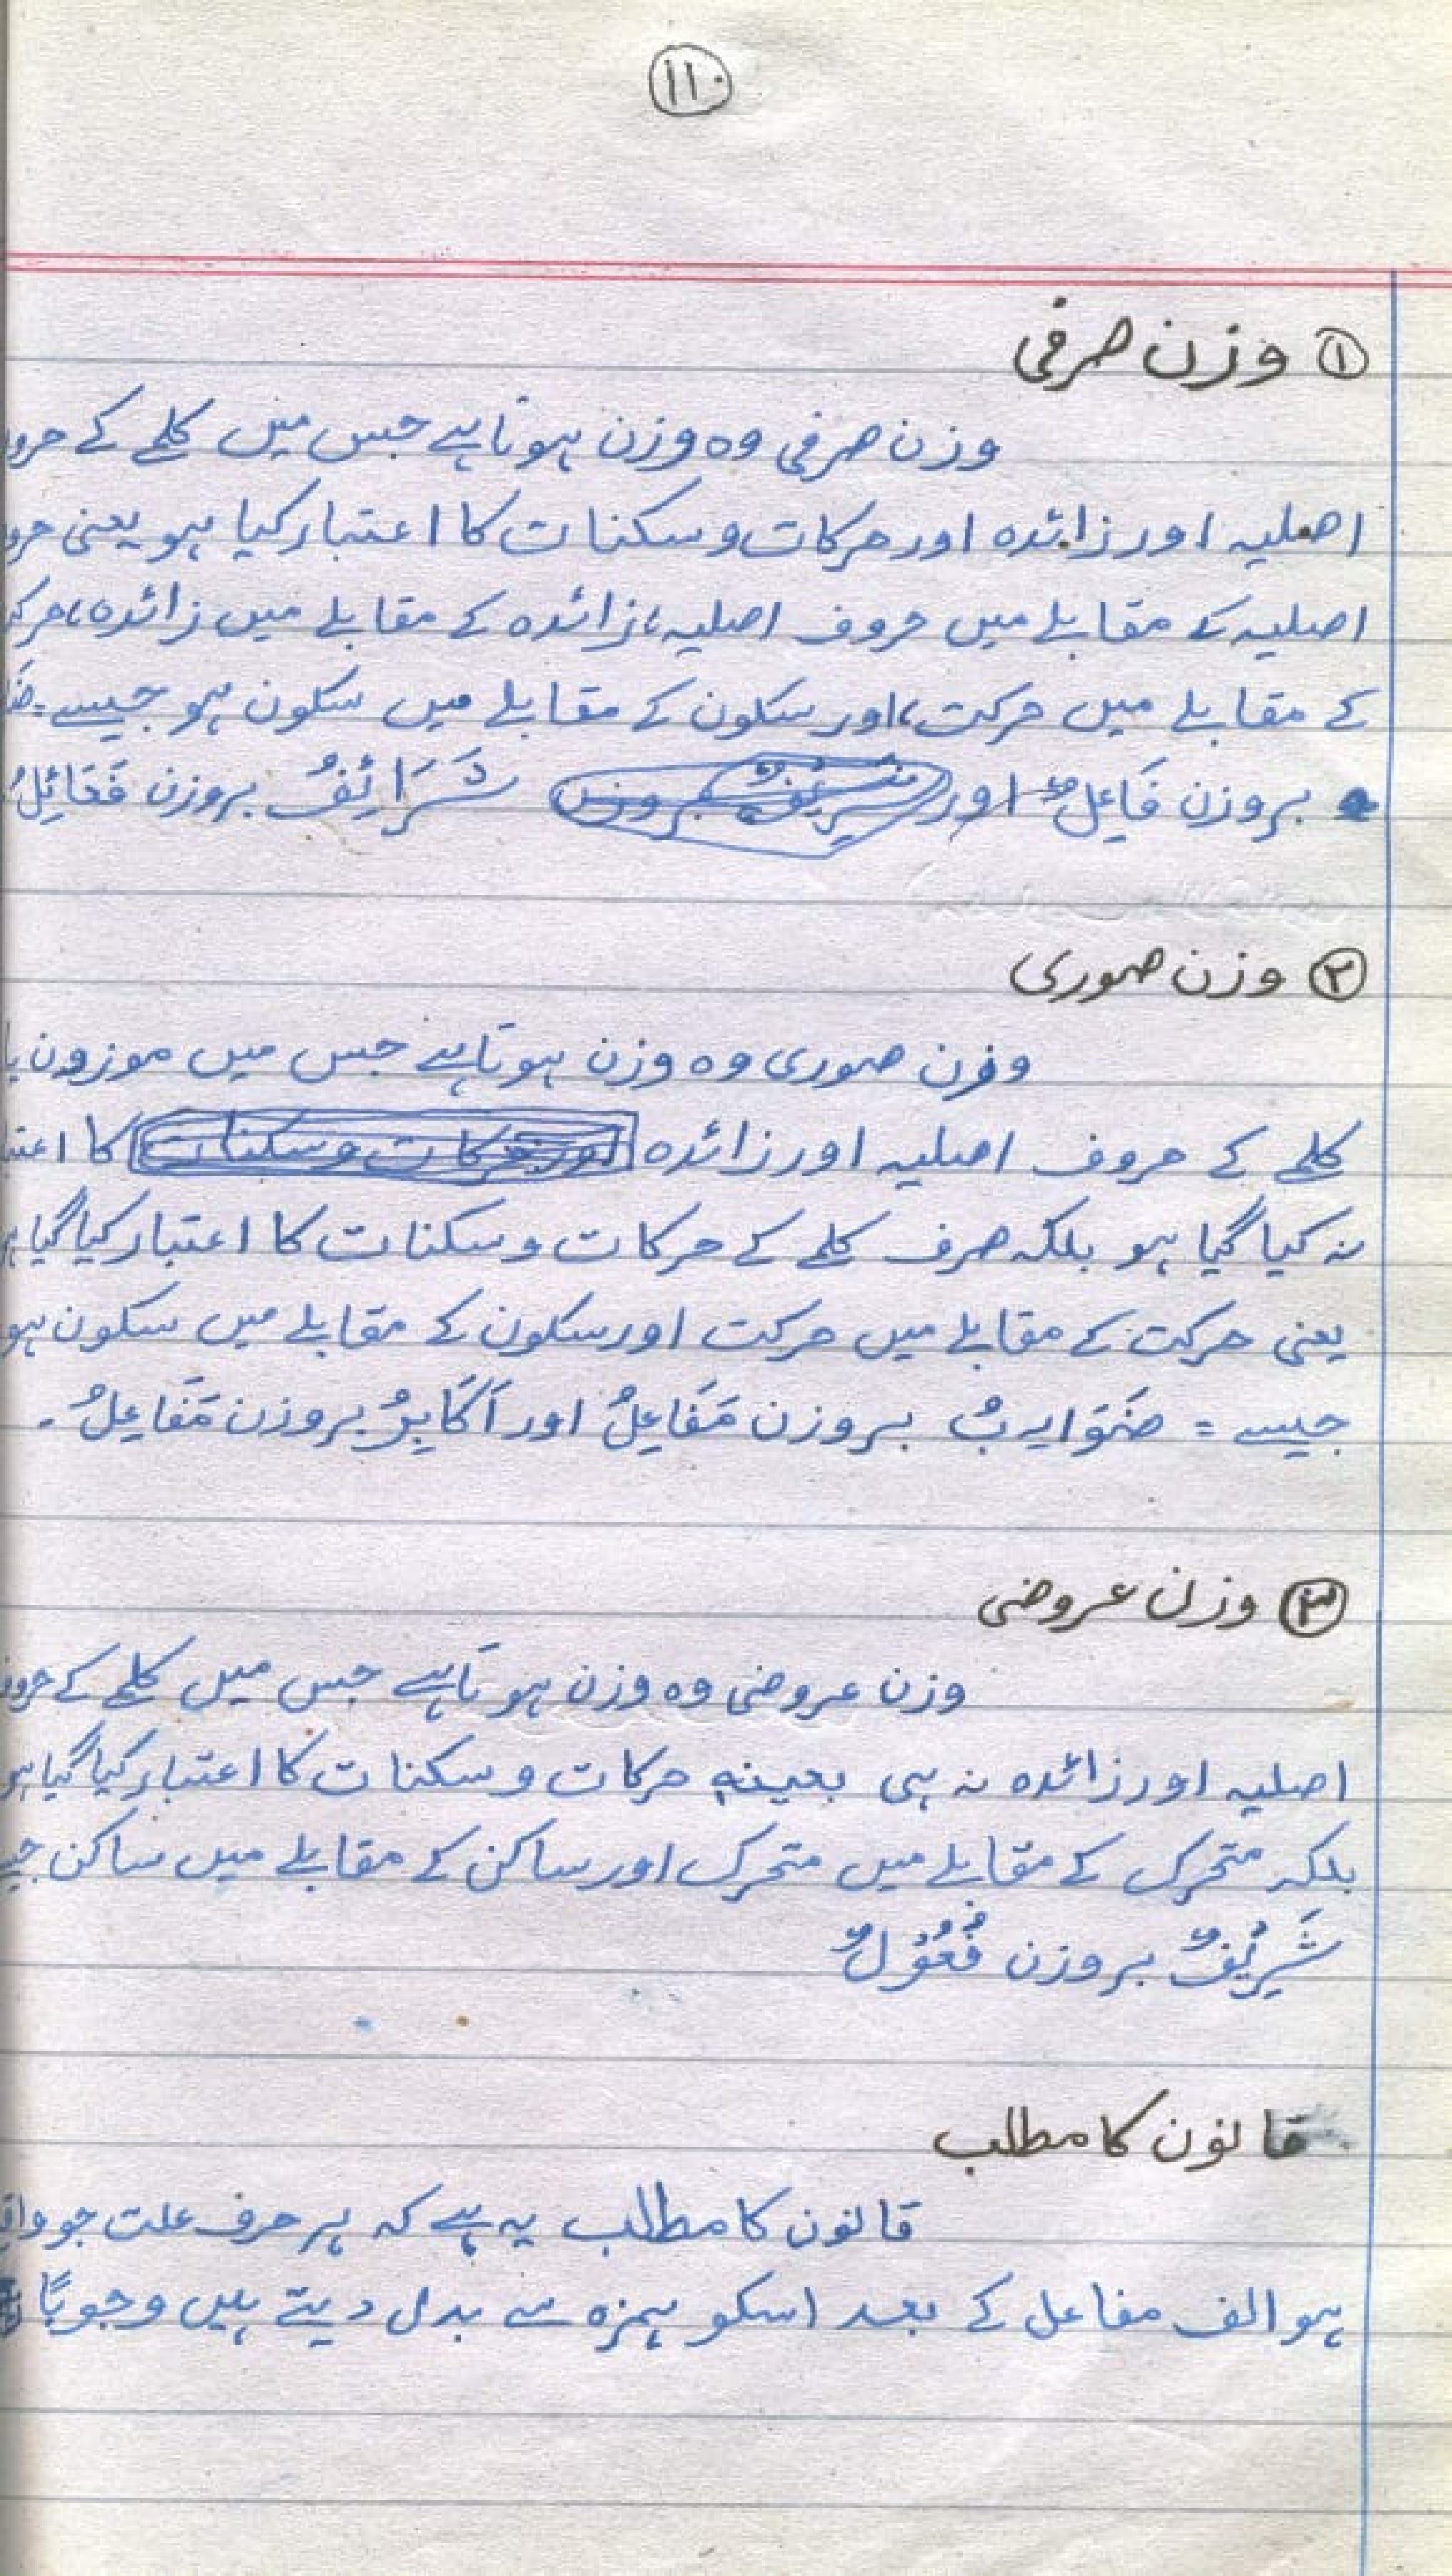 ۱۱۰
۱ وزن صرفی
وزن صرفی وہ وزن ہوتا ہے جس میں کلمے کے حرو
اصلیہ اور زائدہ اور حرکات و سکنات کا اعتبار کیا ہو یعنی حرو
اصلیہ کے مقابلے میں حروف اصلیہ، زائدہ کے مقابلے میں زائدہ، حرک
کے مقابلے میں حرکت، اور سکون کے مقابلے میں سکون ہو جیسے =
بروزن فَاعِلٌ اور شَرَائِفُ بروزن فَعَائِلُ
۲ وزن صوری
وزن صوری وہ وزن ہوتا ہے جس میں موزون یا
کلمے کے حروف اصلیہ اور زائدہ اور حرکات و سکنات کا اعتبا
نہ کیا گیا ہو بلکہ صرف کلمے کے حرکات و سکنات کا اعتبار کیا گیا ہ
یعنی حرکت کے مقابلے میں حرکت اور سکون کے مقابلے میں سکون ہو
جیسے = ضَوَارِبُ بروزن مَفَاعِلُ اور اَکَابِرُ بروزن مَفَاعِلُ ۔
۳ وزن عروضی
وزن عروضی وہ وزن ہوتا ہے جس میں کلمے کے حروف
اصلیہ اور زائدہ نہ ہی بعینہٖ حرکات و سکنات کا اعتبار کیا گیا ہو
بلکہ متحرک کے مقابلے میں متحرک اور ساکن کے مقابلے میں ساکن جیسے
شَرِیْفٌ بروزن فُعُوْلٌ
قانون کا مطلب
قانون کا مطلب یہ ہے کہ ہر حرف علت جو واق
ہو الف مفاعل کے بعد اسکو ہمزہ سے بدل دیتے ہیں وجوبًا